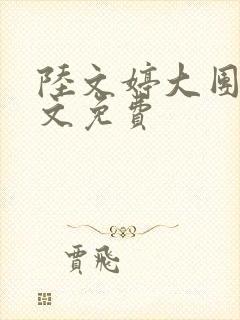 陸文婷大围
文免費
賈飛